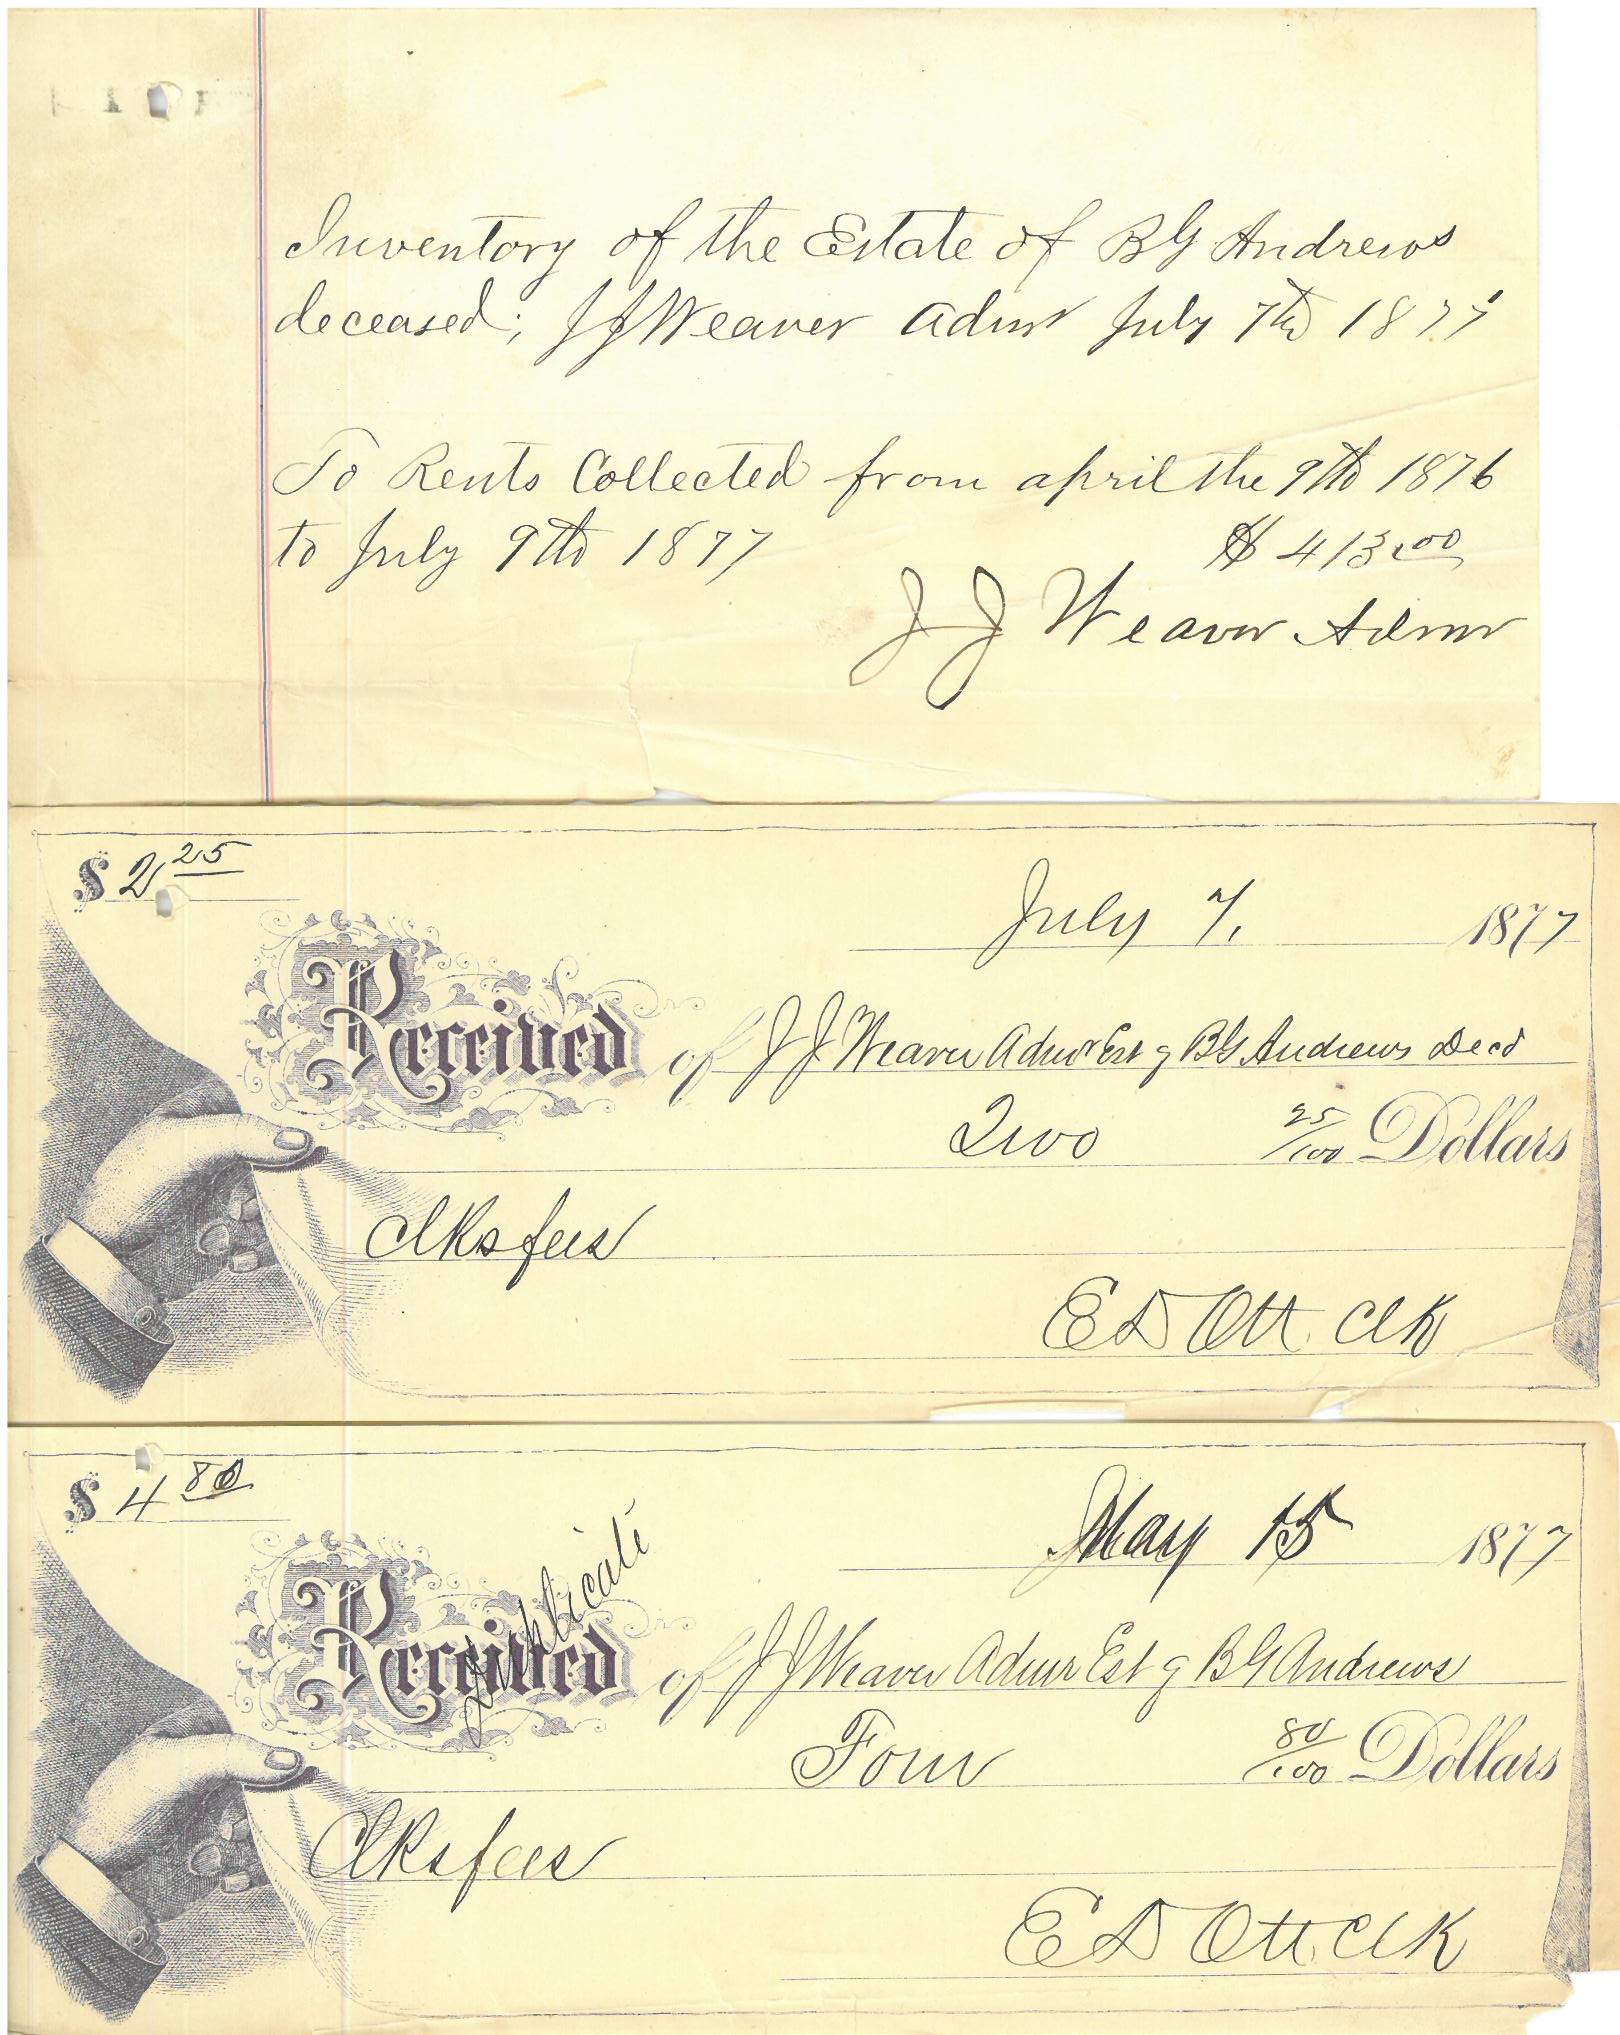 Inventory of the Estate of B G Andrews
deceased; J J Weaver Admr July 7th 1877
To Rents Collected from april the 9th 1876
to July 9th 1877 $ 413.00
J J Weaver Admr
$ 2 25
July 7, 1877
Received of J J Weaver Admr Est of B G Andrews Decd
Two 25/100 Dollars
Clks fees
E D Ott Clk
$ 4 80
May 15 1877
Duplicate
Received of J J Weaver Admr Est of B G Andrews
Four 80/100 Dollars
Clks fees
E D Ott Clk